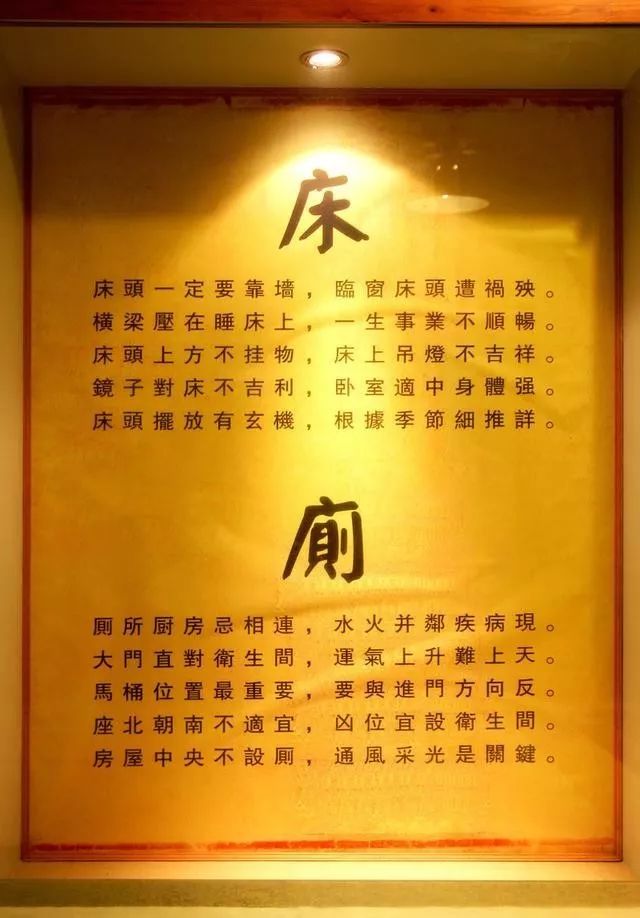 床
床頭一定要靠墙，臨窗床頭遭禍殃。
横梁壓在睡床上，一生事業不順暢。
床頭上方不挂物，床上吊燈不吉祥。
鏡子對床不吉利，卧室適中身體强。
床頭擺放有玄機，根據季節細推詳。
廁
厠所厨房忌相連，水火并鄰疾病現。
大門直對衛生間，運氣上升難上天。
馬桶位置最重要，要與進門方向反。
座北朝南不適宜，凶位宜設衛生間。
房屋中央不設厠，通風采光是關鍵。